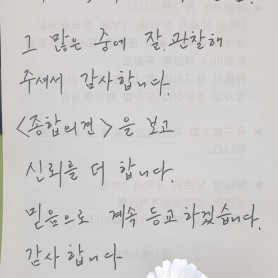 그 많은 중에 잘 관찰해
주셔서 감사합니다.
<종합의견>을 보고
신뢰를 더 합니다.
믿음으로 계속 등교하겠습니다.
감사합니다